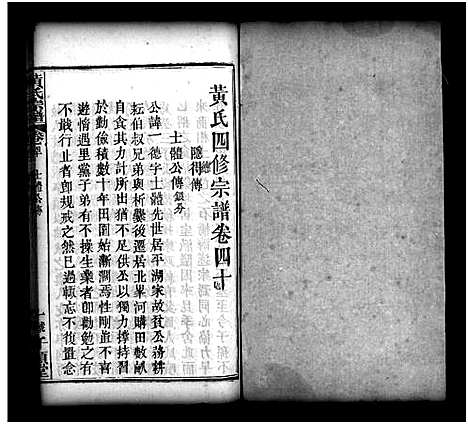 黃氏四修宗譜卷四十
隱德傳
士體公傳
公諱一德字士體先世居平湖家故貧公務耕
耘伯叔兄弟與析爨後遷居北峯河購田數畝
自食其力計所出猶不足供公以獨力撐持習
於勤儉積數十年田園始漸潤焉性剛直不喜
避情遇里黨子弟有不操生業者卽勸勉之有
不戢行止者卽規戒之然已過輒忘不復置念
士體公傳